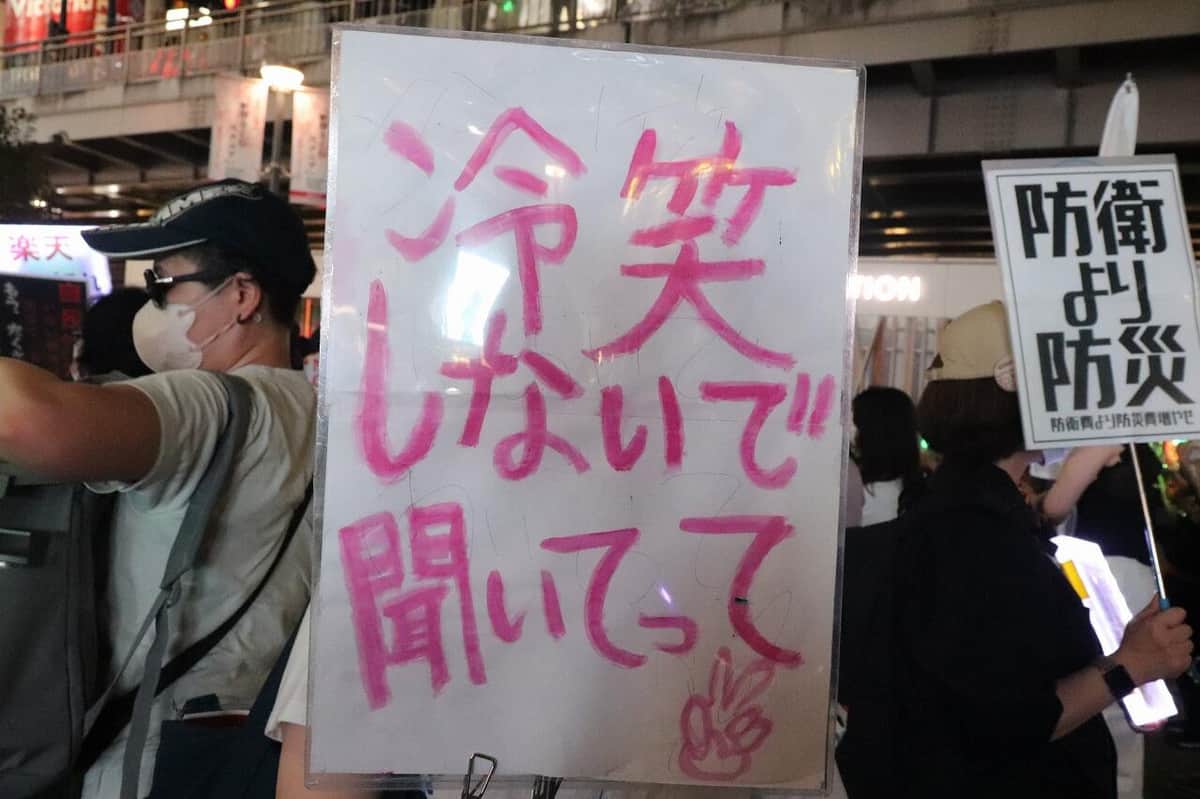 冷笑
しないで
聞いてって
防衛
より
防災
防衛費より防災費増やせ
楽天
Victoria